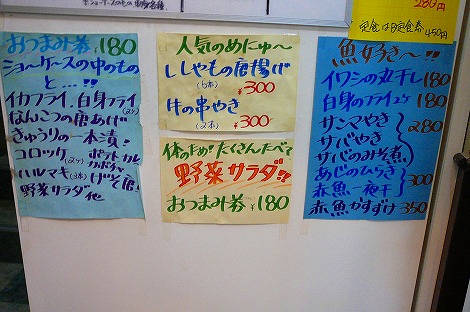 ※ショーケースのもの
280円
定食はB定食券
450円
おつまみ券 ¥180
ショーケースの中のもの
と…!!
イカフライ、白身フライ(2ヶ)
なんこつの唐あげ
きゅうりの一本漬!
コロッケ(2ヶ) ポテトカレー
ハルマキ(3本) げそ唐!
野菜サラダ 他
人気のめにゅ〜
ししゃもの唐揚げ
(5本) ¥300
牛の串やき
(2本) ¥300
体のため!たくさんたべて
野菜サラダ!!
おつまみ券 ¥180
魚好き〜!!
イワシの丸干し 180
白身のフライ2ヶ 180
サンマやき
サバやき 280
サバのみそ煮
あじのひらき
赤魚一夜干 300
赤魚かすづけ 350